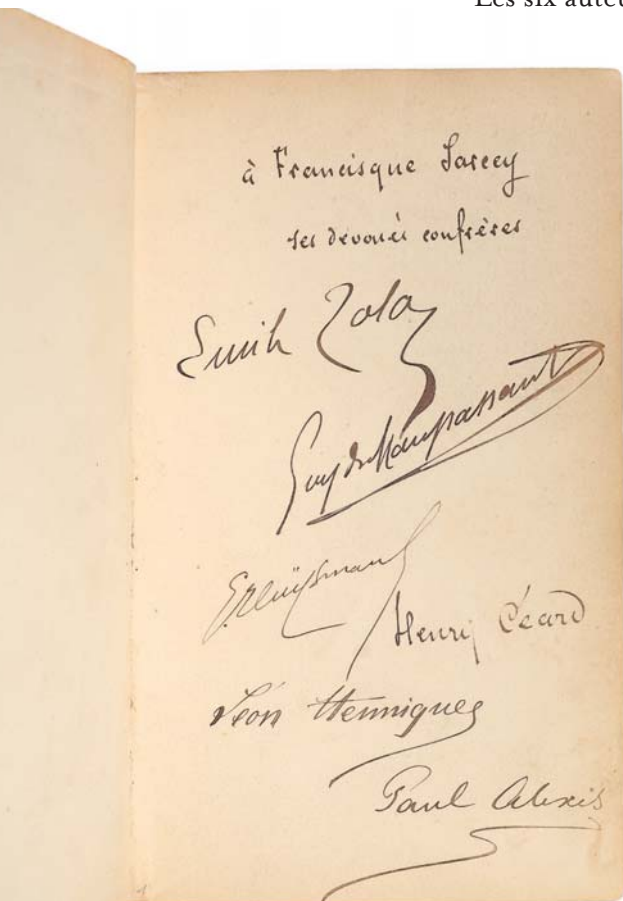 Les six auteu
à Francisque Sarcey
ses dévoués confrères
Emile Zola
Guy de Maupassant
J.K. Huÿsmans
Henry Céard
Léon Hennique
Paul Alexis